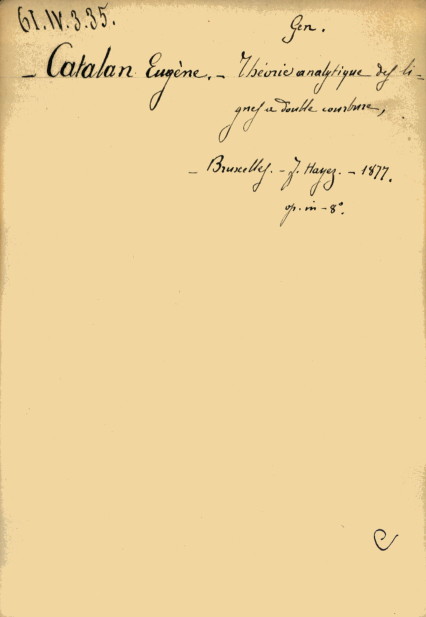 61.IV.3.35.
Gen.
- Catalan Eugène. - Théorie analytique des li-
gnes a double courbure,
- Bruxelles. - J. Hayez. - 1877.
op. in - 8°.